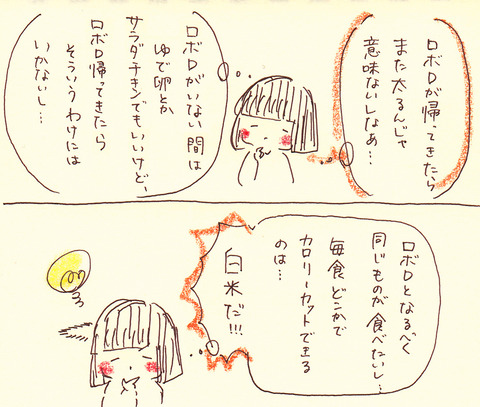 ロボDが帰ってきたら
また太るんじゃ
意味ないしなぁ…
ロボDがいない間は
ゆで卵とか
サラダチキンでもいいけど、
ロボD帰ってきたら
そういうわけには
いかないし…
ロボDとなるべく
同じものが食べたいし…
毎食どこかで
カロリーカットできる
のは…
白米だ!!!